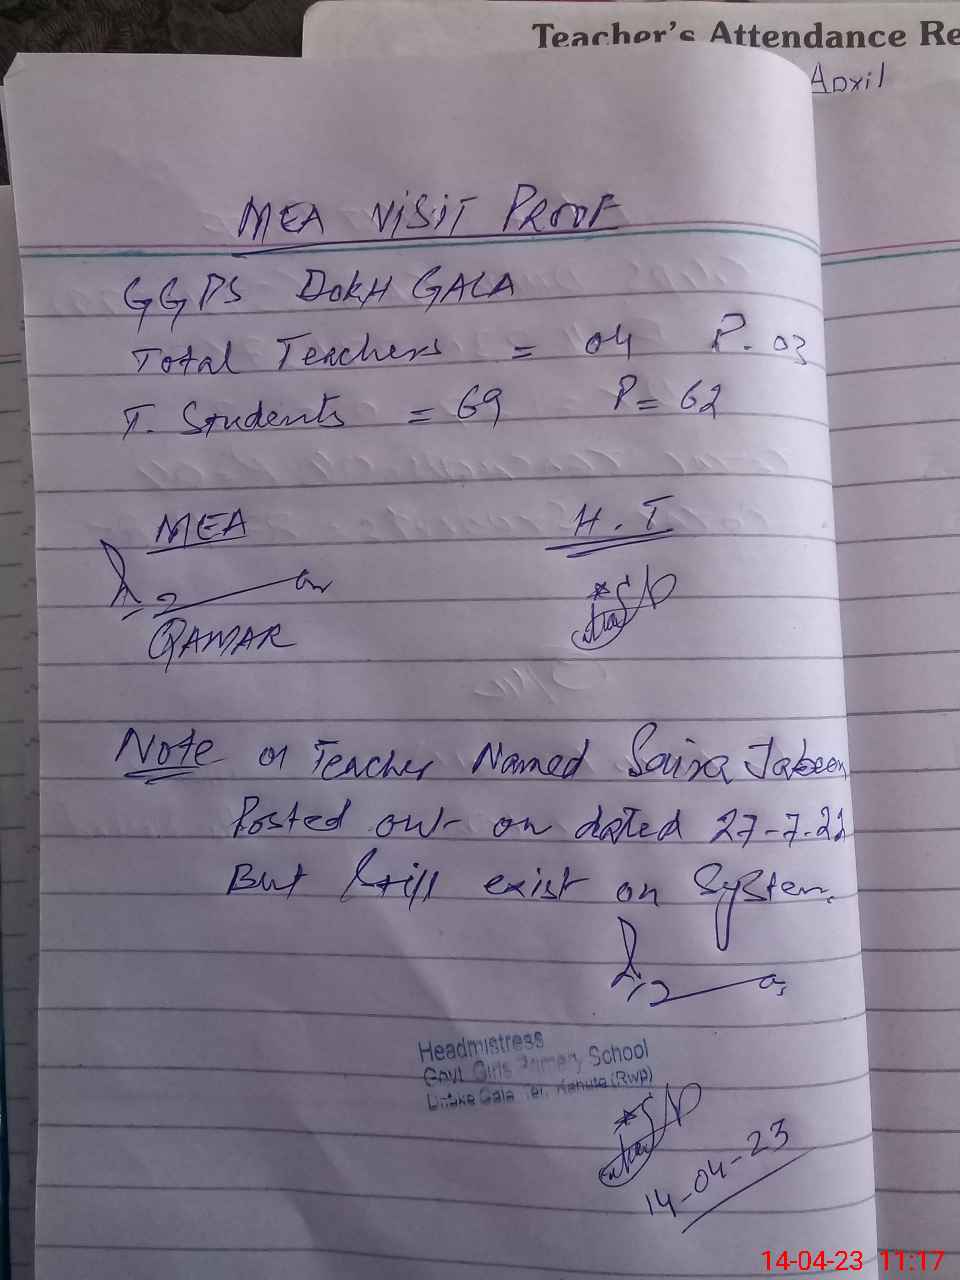 Teacher's Attendance Re
April
MEA VISIT PROOF
GGPS DOKH GALA
Total Teachers = 04 P. 03
T. Students = 69 P = 62
MEA H.T
QAMAR
Note 01 Teacher Named Saira Jabeen
Posted out on dated 27-7-22
But still exist on System.
Headmistress
Govt Girls Primary School
Gala Teh. Kahuta (Rwp)
14-04-23
14-04-23 11:17